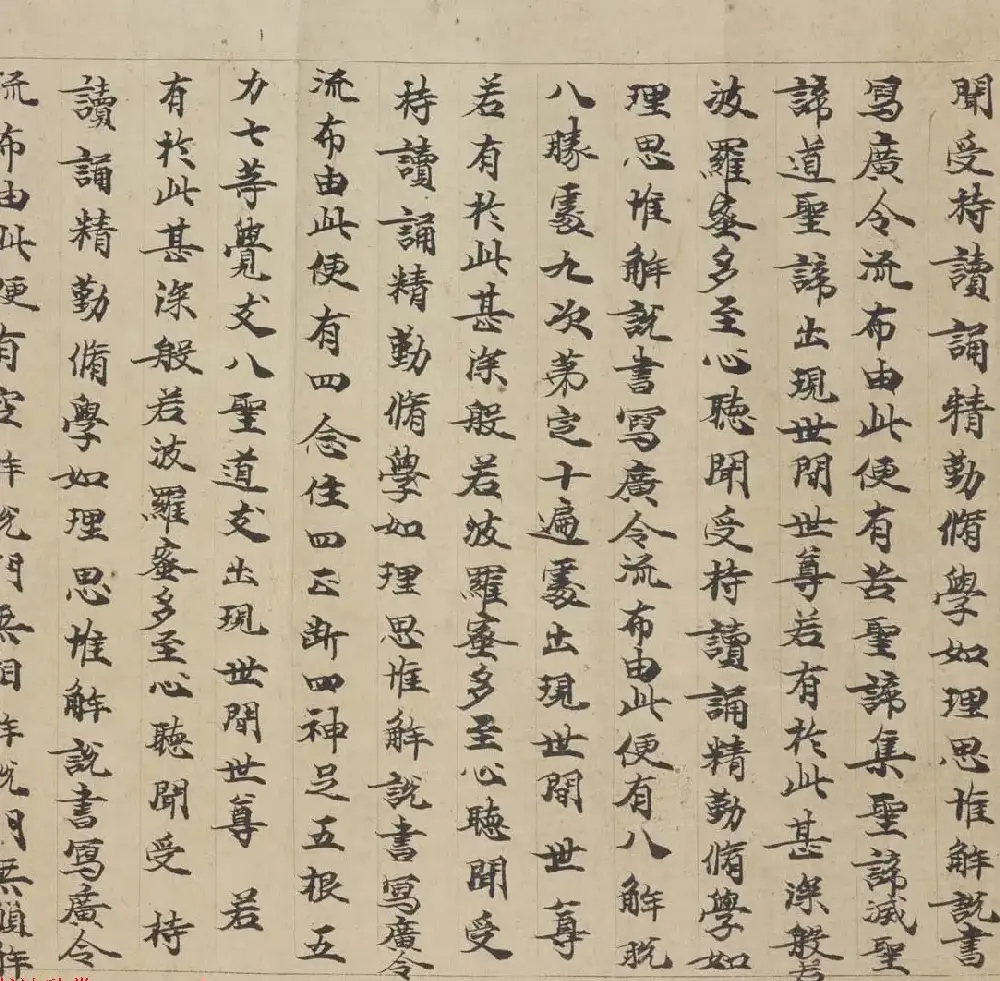 聞受持讀誦精勤脩學如理思惟解說書
寫廣令流布由此便有苦聖諦集聖諦滅聖
諦道聖諦出現世間世尊若有於此甚深般若
波羅蜜多至心聽聞受持讀誦精勤脩學如
理思惟解說書寫廣令流布由此便有八解脫
八勝處九次第定十遍處出現世間世尊
若有於此甚深般若波羅蜜多至心聽聞受
持讀誦精勤脩學如理思惟解說書寫廣令
流布由此便有四念住四正斷四神足五根五
力七等覺支八聖道支出現世間世尊若
有於此甚深般若波羅蜜多至心聽聞受持
讀誦精勤脩學如理思惟解說書寫廣令
流布由此便有空解脫門無相解脫門無願解